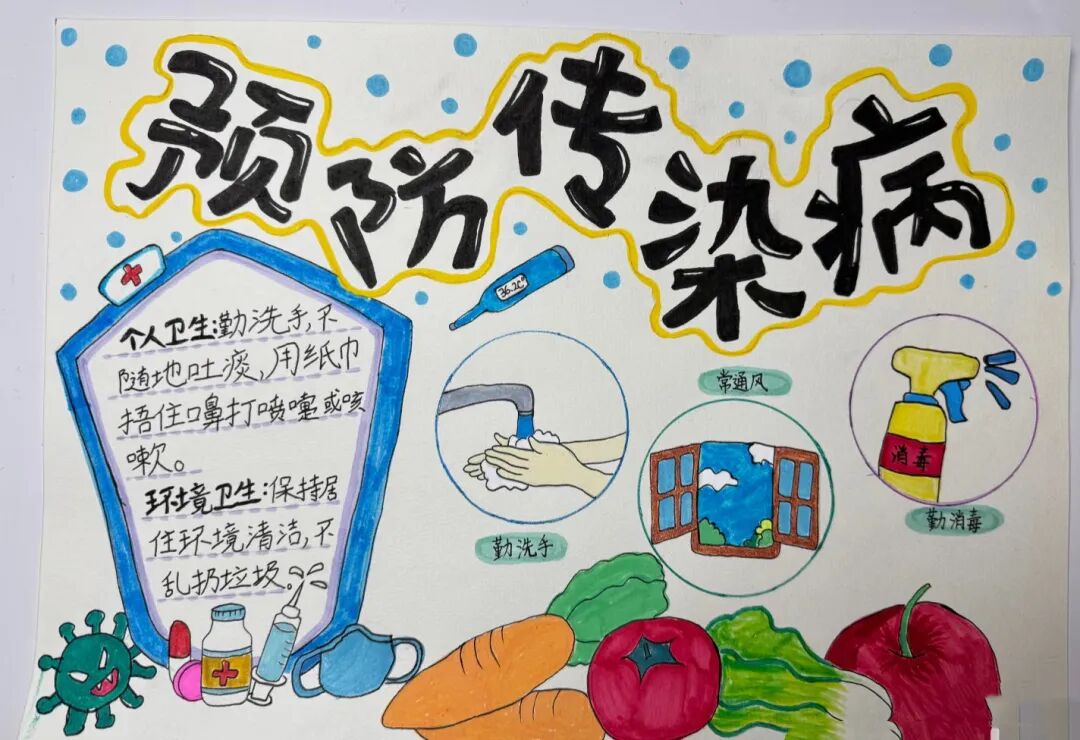 预防传染病
36.2C°
个人卫生:勤洗手,不
随地吐痰,用纸巾
捂住嘴鼻打喷嚏或咳
嗽。
环境卫生:保持居
住环境清洁,不
乱扔垃圾。
勤洗手
常通风
消毒
勤消毒